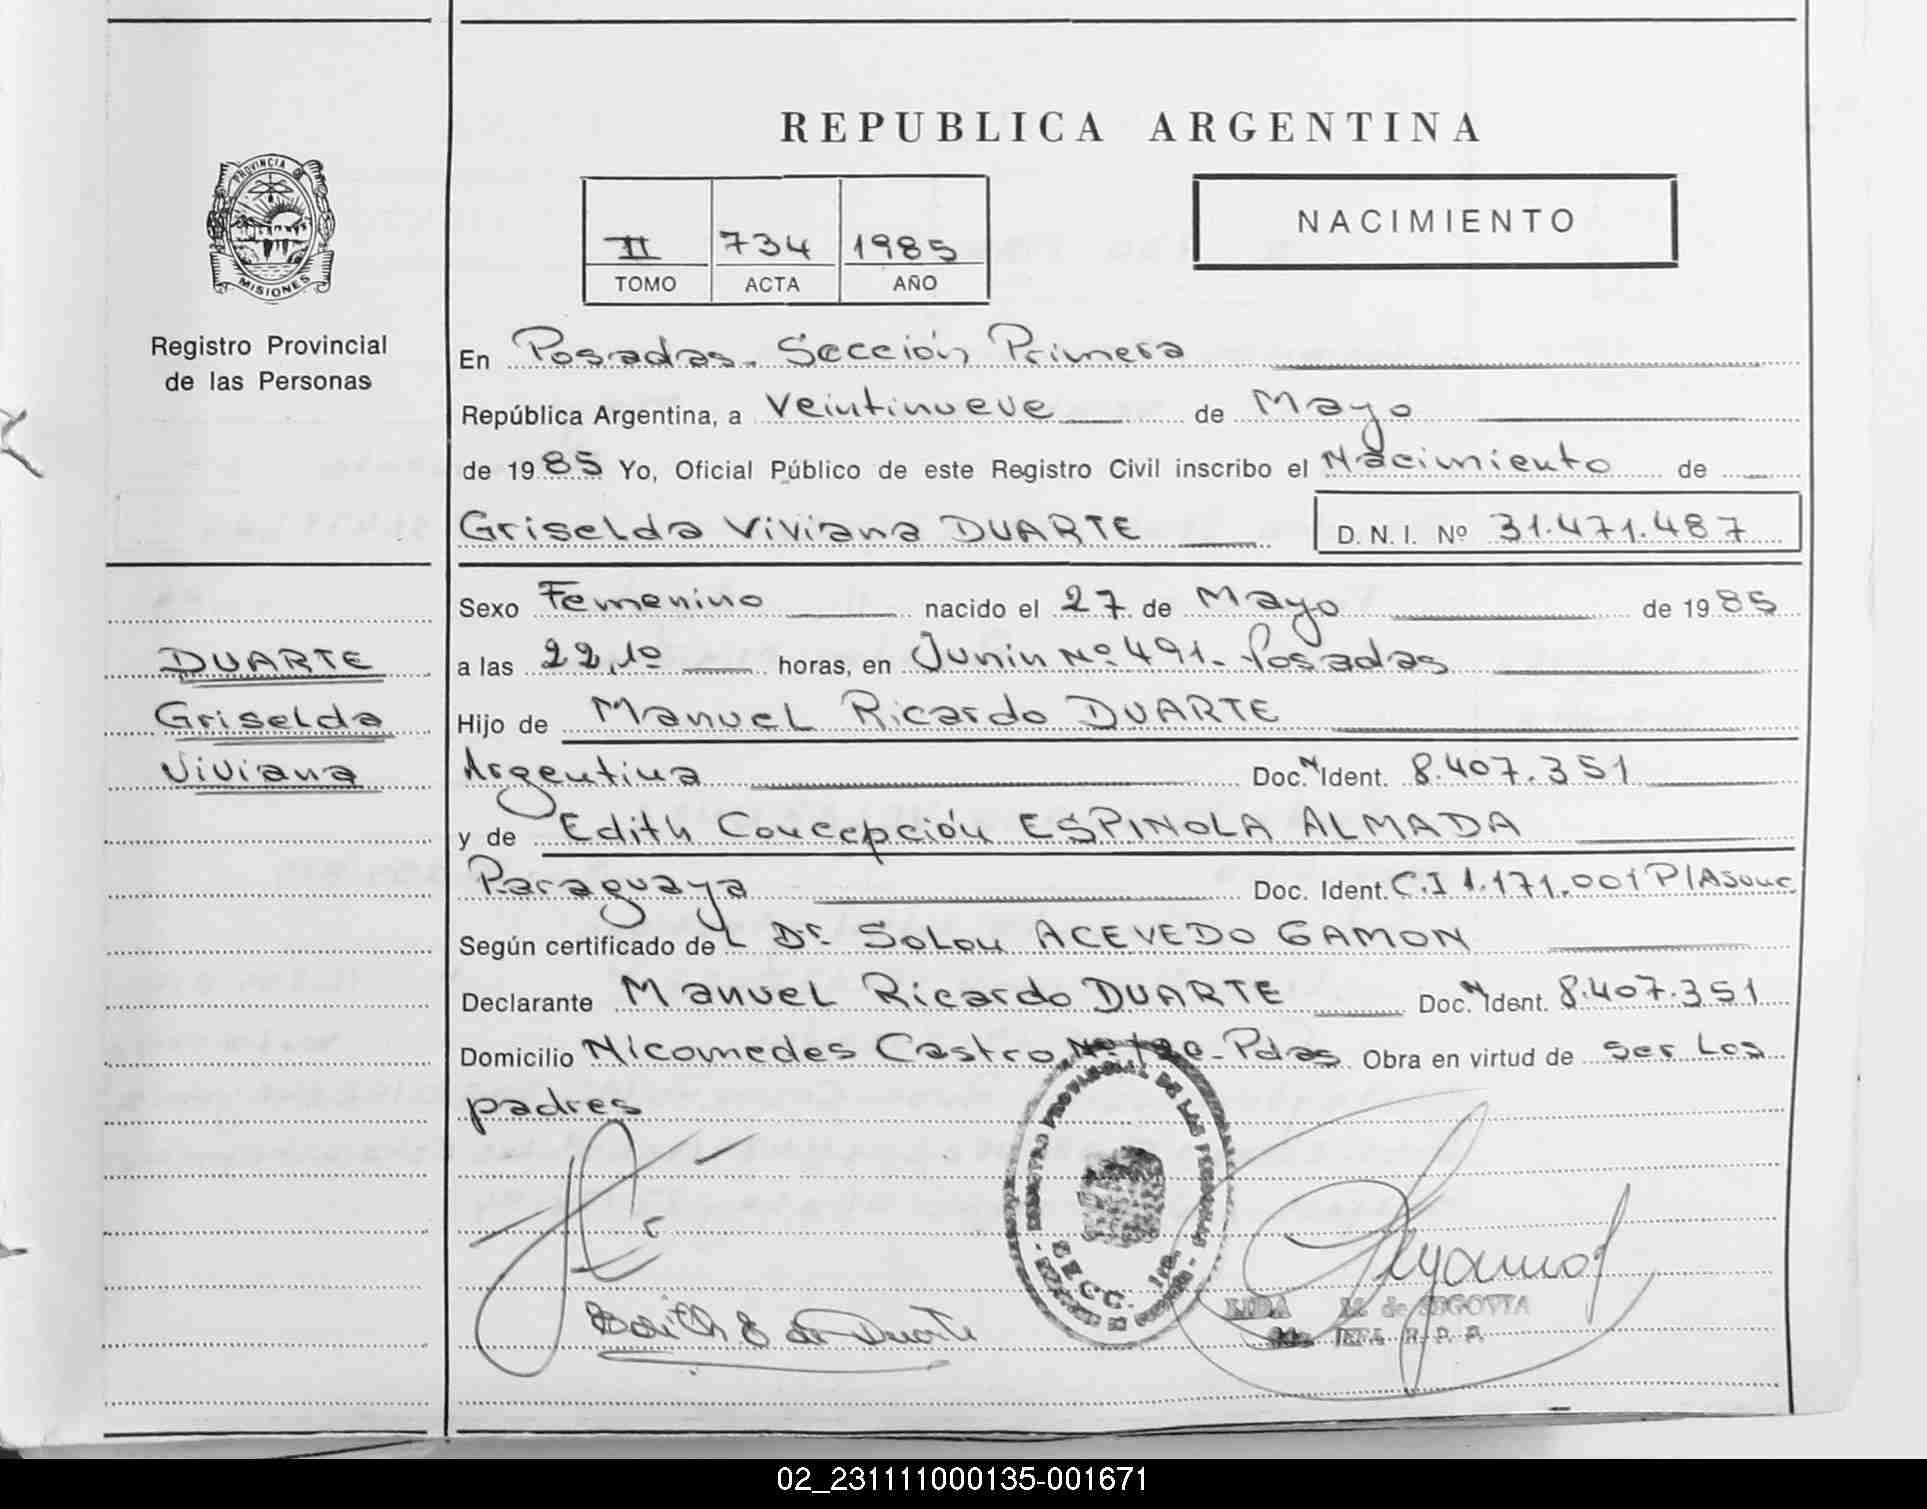 REPUBLICA ARGENTINA
PROVINCIA DE
MISIONES
Registro Provincial
de las Personas
II 734 1985
TOMO ACTA AÑO
NACIMIENTO
En Posadas. Sección Primera
República Argentina, a Veintinueve de Mayo
de 1985 Yo, Oficial Público de este Registro Civil inscribo el Nacimiento de
Griselda Viviana DUARTE D. N. I. Nº 31.471.487
Sexo Femenino nacido el 27 de Mayo de 1985
DUARTE
Griselda
Viviana
a las 22,10 horas, en Junín Nº 491. Posadas
Hijo de Manuel Ricardo DUARTE
Argentina Doc. N Ident. 8.407.351
y de Edith Concepción ESPINOLA ALMADA
Paraguaya Doc. Ident. C.I 1.171.001 P/Asunc
Según certificado del Dr. Solou ACEVEDO GAMON
Declarante Manuel Ricardo DUARTE Doc. N Ident. 8.407.351
Domicilio Nicomedes Castro Nº Pdas. Obra en virtud de ser Los
padres
REGISTRO PROVINCIAL DE LAS PERSONAS
SECC. 1ra.
Edith E de Duarte
LIDA M. de SEGOVIA
JEFA R. P. P.
02_231111000135-001671